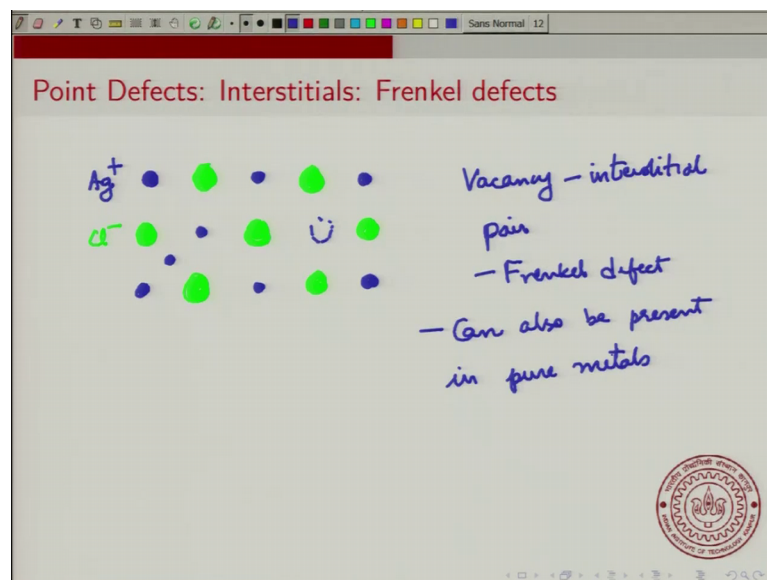 T
Sans Normal 12
Point Defects: Interstitials: Frenkel defects
Ag+
Cl-
Vacancy - interstitial
pair
- Frenkel defect
- Can also be present
in pure metals
INDIAN INSTITUTE OF TECHNOLOGY KANPUR